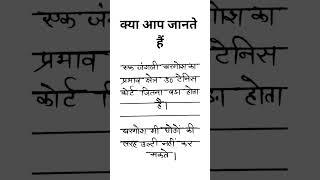 क्या आप जानते
हैं
एक जंगली खरगोश का
प्रभाव क्षेत्र 30 टेनिस
कोर्ट जितना बड़ा होता
है।
खरगोश भी घोड़ों की
तरह उल्टी नहीं कर
सकते।